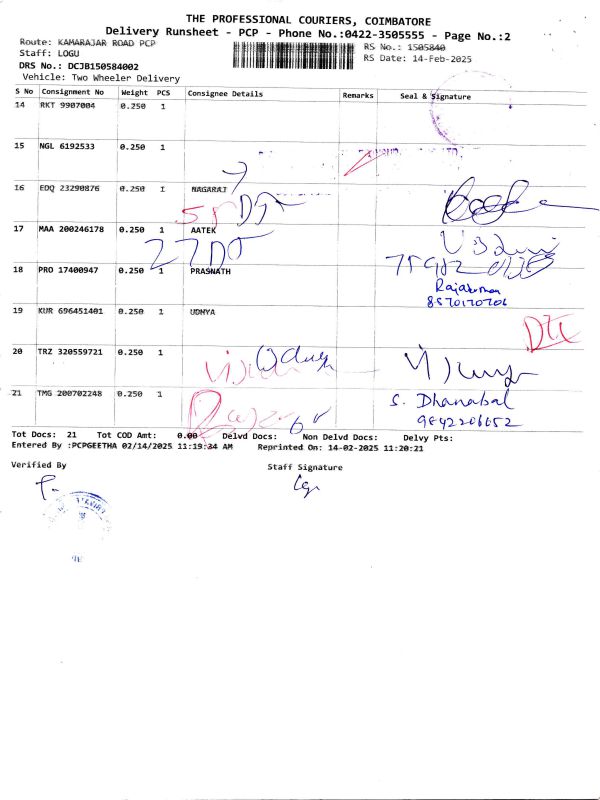 THE PROFESSIONAL COURIERS, COIMBATORE
Delivery Runsheet - PCP - Phone No.:0422-3505555 - Page No.:2
Route: KAMARAJAR ROAD PCP
RS No.: 1505840
Staff: LOGU
RS Date: 14-Feb-2025
DRS No.: DCJB150584002
Vehicle: Two Wheeler Delivery
S No Consignment No Weight PCS Consignee Details Remarks Seal & Signature
14 RKT 9907004 0.250 1
15 NGL 6192533 0.250 1
16 EDQ 23290876 0.250 1 NAGARAJ
17 MAA 200246178 0.250 1 AATEK
18 PRO 17400947 0.250 1 PRASNATH
Rajakumar
8570170706
19 KUR 696451401 0.250 1 UDHYA
20 TRZ 320559721 0.250 1
21 TMG 200702248 0.250 1 S. Dhanabal
9842206652
Tot Docs: 21 Tot COD Amt: 0.00 Delvd Docs: Non Delvd Docs: Delvy Pts:
Entered By :PCPGEETHA 02/14/2025 11:19:34 AM Reprinted On: 14-02-2025 11:20:21
Verified By
Staff Signature